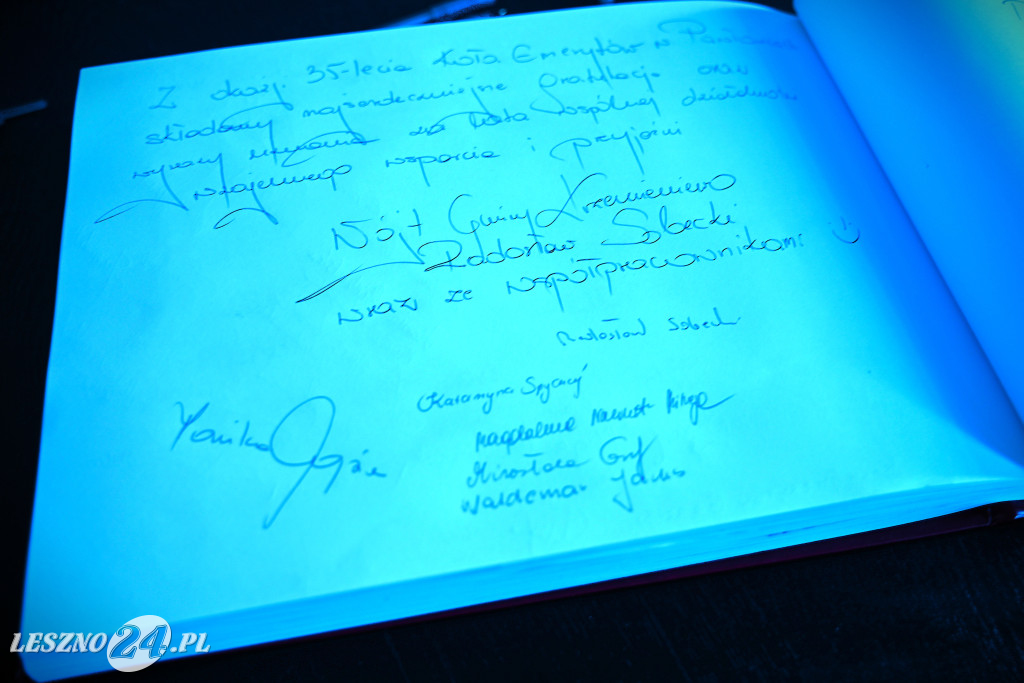 Z okazji 35-lecia Koła Emerytów w
składamy najserdeczniejsze Gratulacje oraz
wyrazy uznania za lata wspólnej działalności
wzajemnego wsparcia i przyjaźni
Wójt Gminy Krzemieniewo
Radosław Sobecki
wraz ze współpracownikami :)
Radosław Sobecki
Katarzyna
Monika
Magdalena
Mirosława
Waldemar
LESZNO24.PL